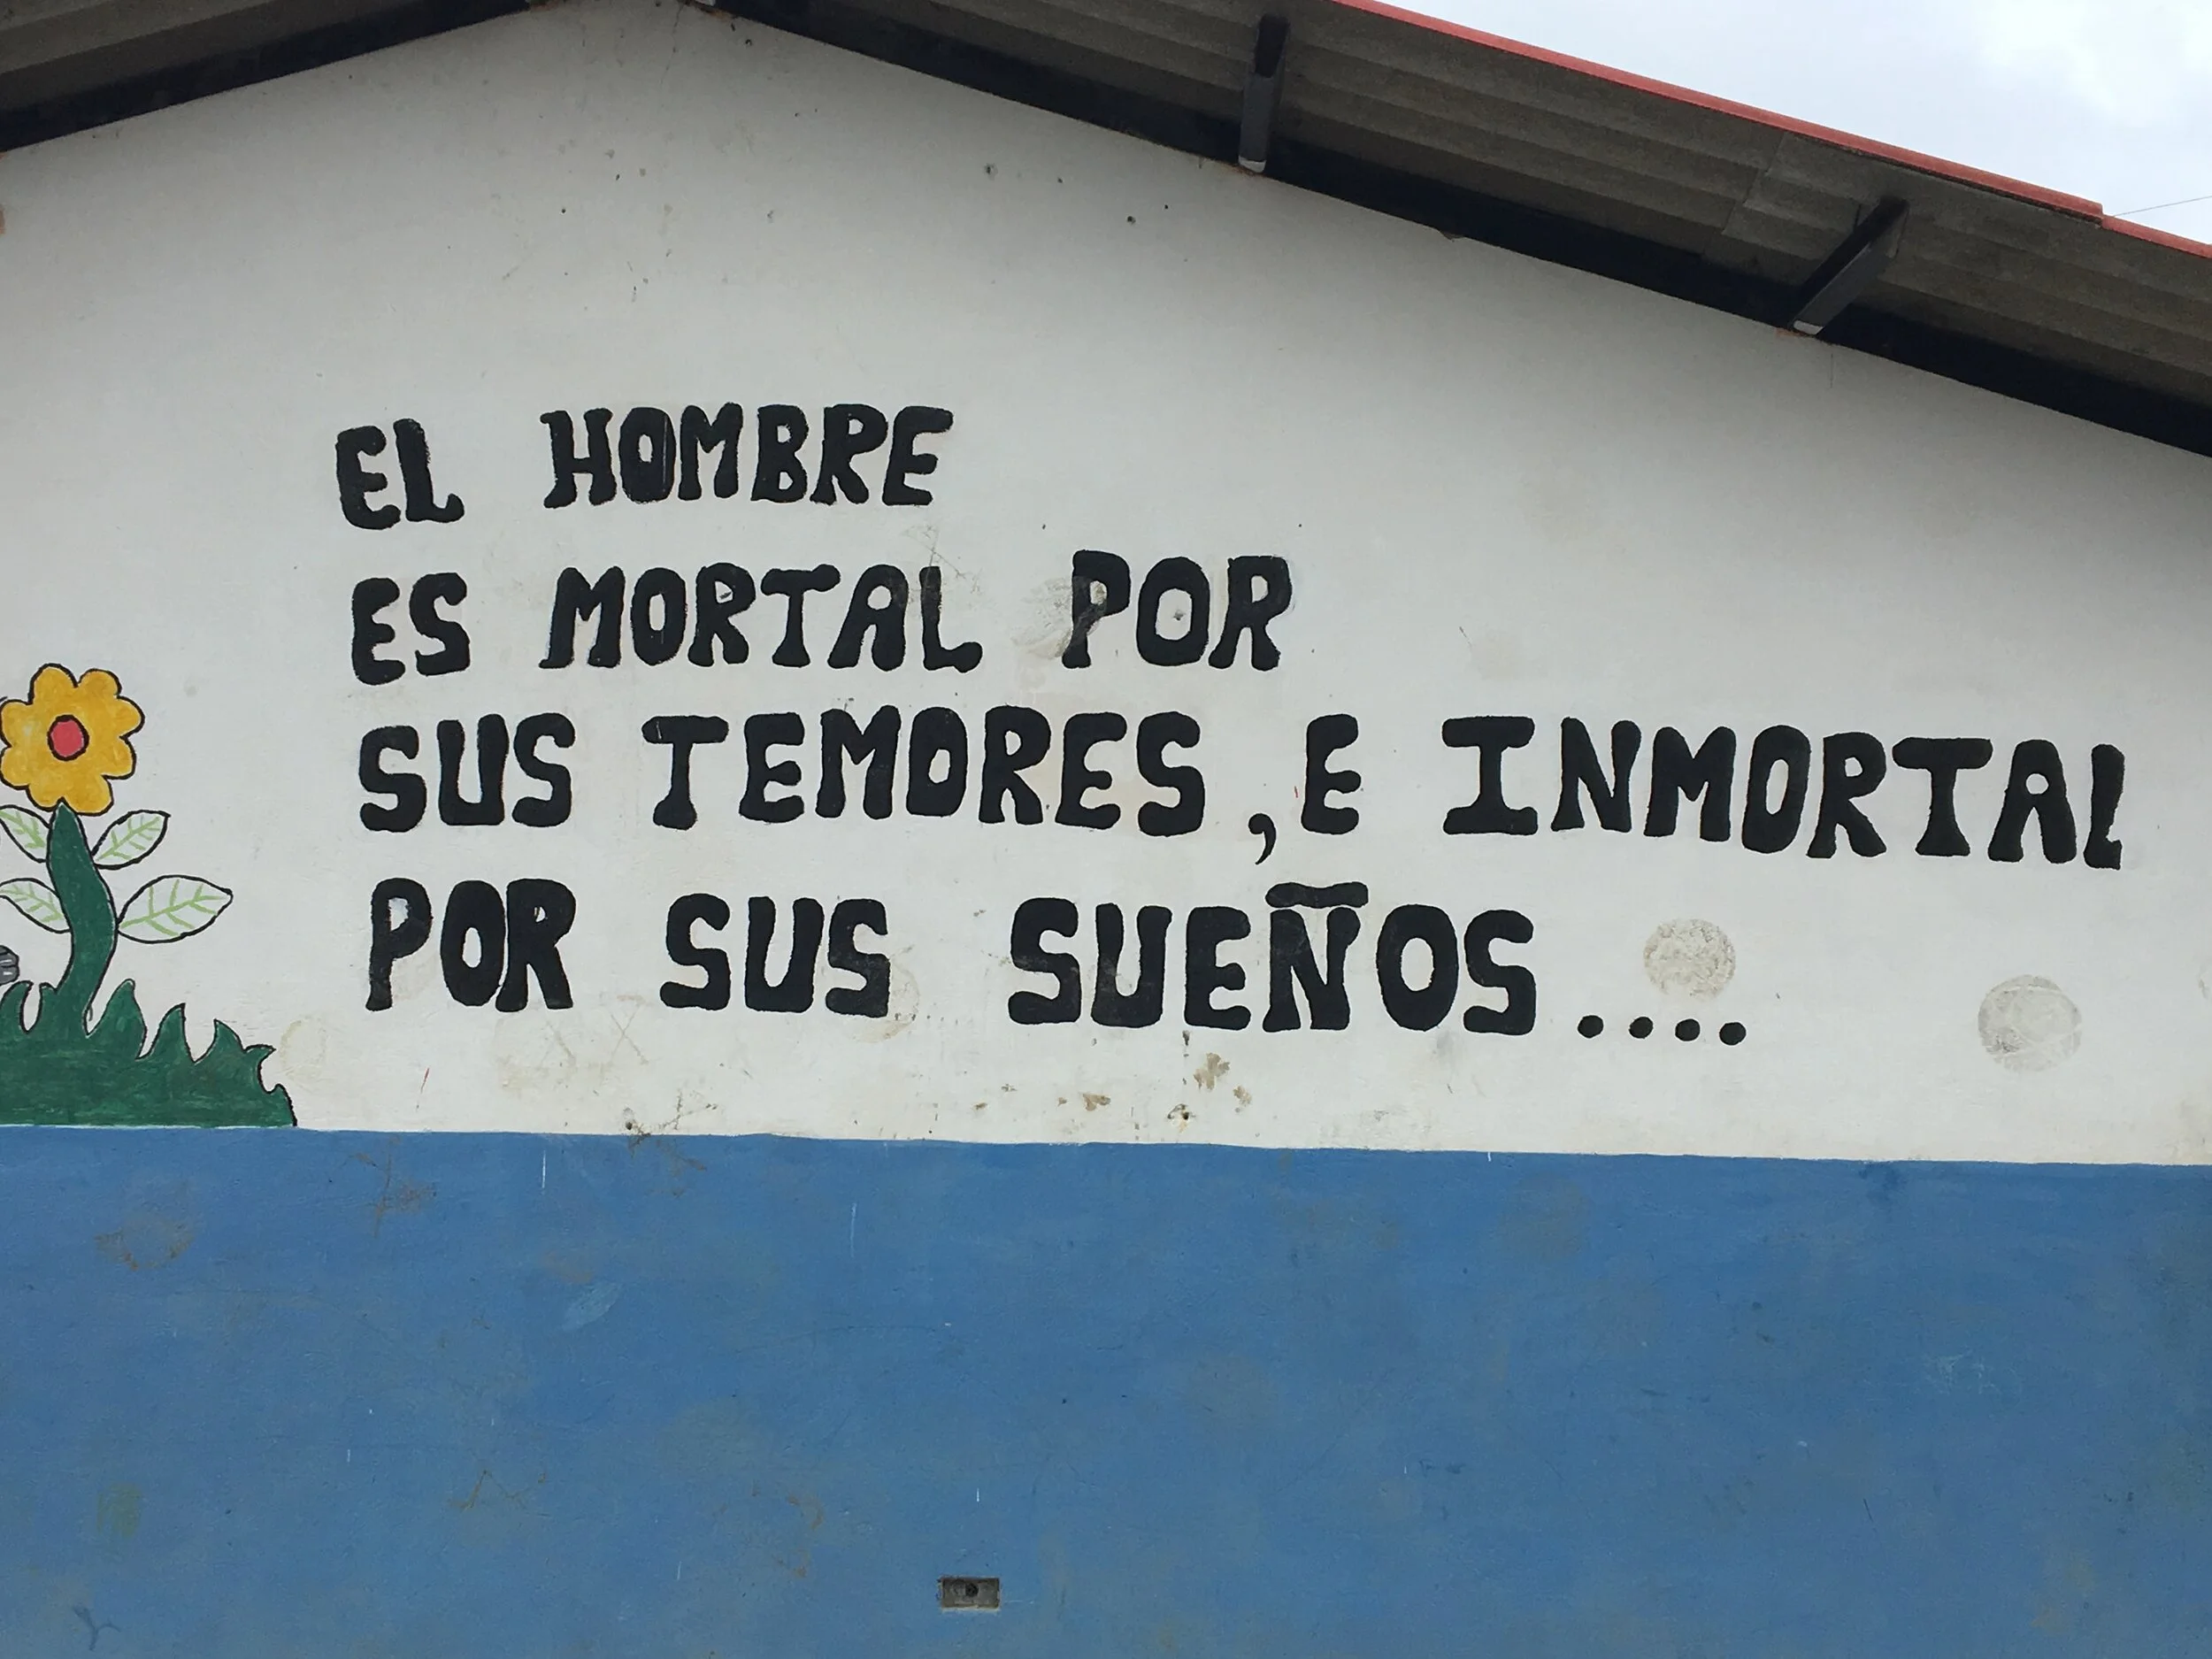 EL HOMBRE
ES MORTAL POR
SUS TEMORES, E INMORTAL
POR SUS SUEÑOS....